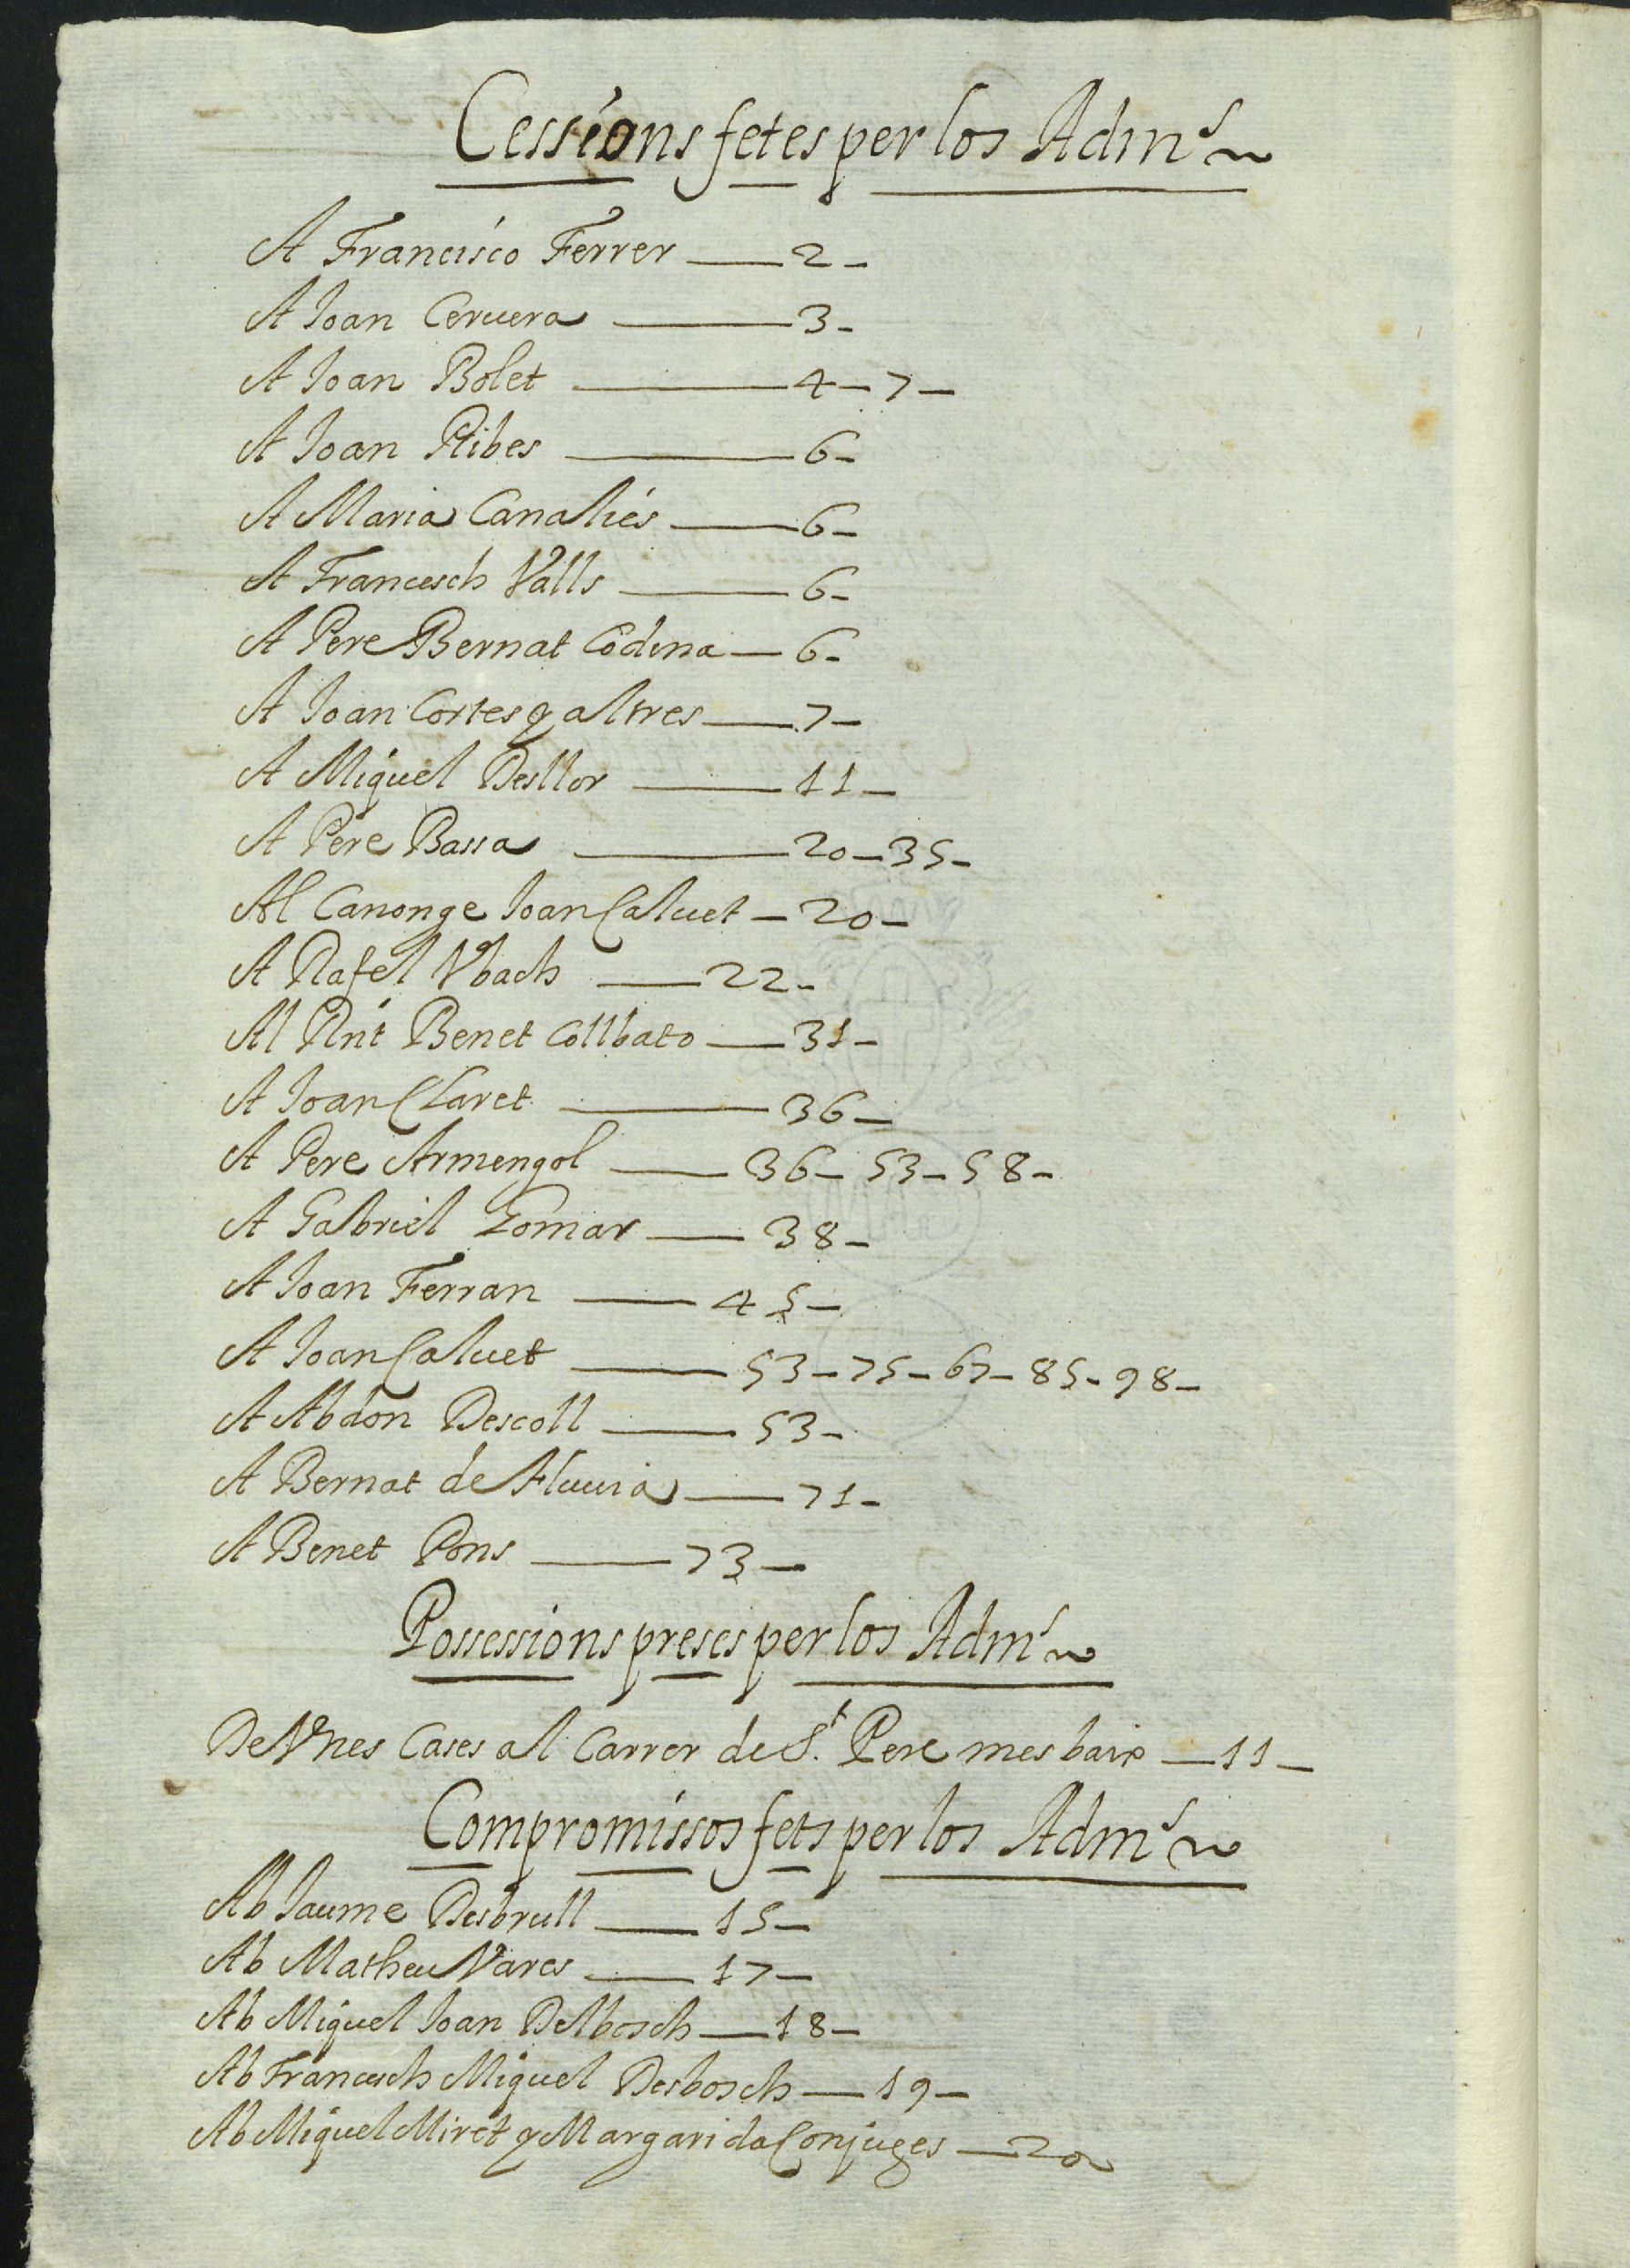 Cessions fetes per los Adm.s
A Francisco Ferrer — 2 -
A Joan Cervera — 3 -
A Joan Bolet — 4 - 7 -
A Joan Ribes — 6 -
A Maria Canalies — 6 -
A Francesch Valls — 6 -
A Pere Bernat Codina — 6 -
A Joan Cortes y altres — 7 -
A Miquel Desllor — 11 -
A Pere Bassa — 20 - 35 -
Al Canonge Joan Calvet - 20 -
A Rafel Vbach — 22 -
Al Rnt Benet Collbato — 31 -
A Joan Claret — 36 -
A Pere Armengol — 36 - 53 - 58 -
A Gabriel Gomar — 38 -
A Joan Ferran — 45 -
A Joan Calvet — 53 - 75 - 67 - 85 - 98 -
A Abdon Descoll — 53 -
A Bernat de Fluuia — 71 -
A Benet Pons — 73 -
Possessions preses per los Adm.s
De Vnes Cases al Carrer de St. Pere mes baix — 11 -
Compromissos fets per los Adm.s
Ab Jaume Desbrull — 15 -
Ab Matheu Vares — 17 -
Ab Miquel Joan Delbosch — 18 -
Ab Francesch Miquel Desbosch — 19 -
Ab Miquel Miret y Margarida Conjuges — 20